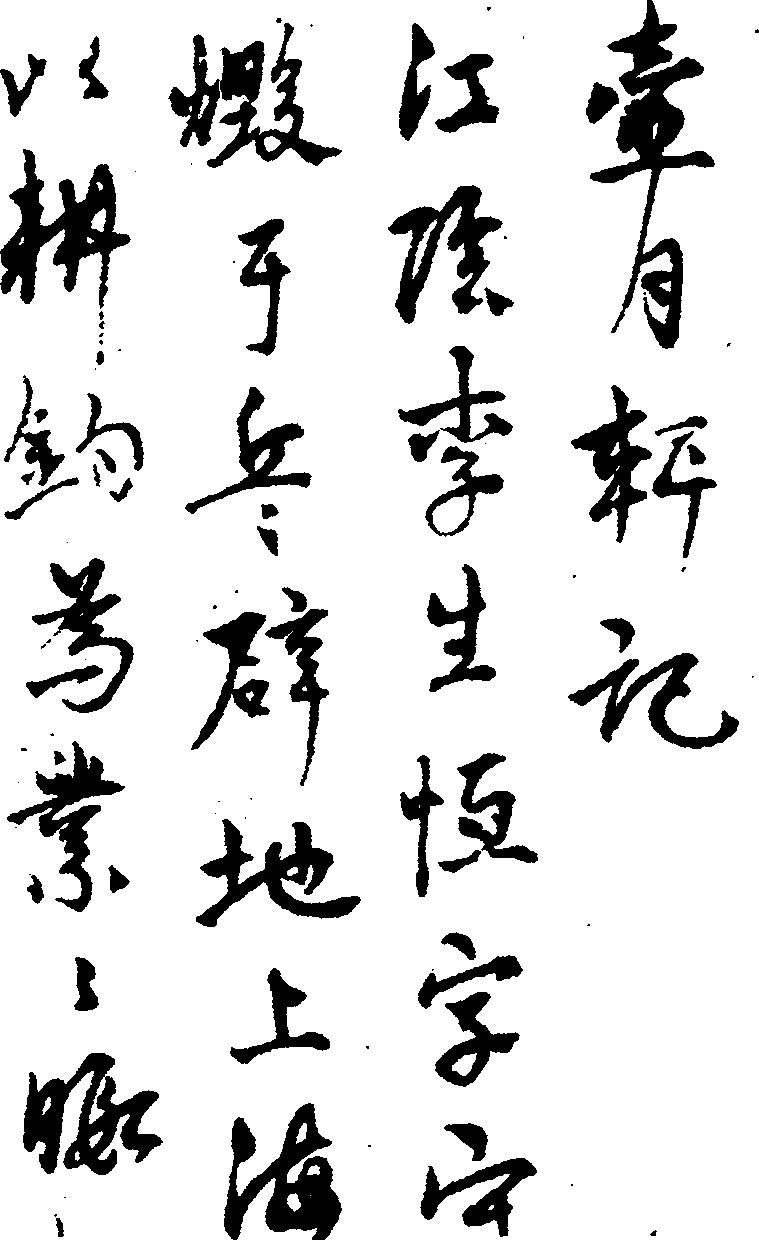 壺月軒記
江陰李生恒字守
燬于兵辟地上海
以耕釣為業〻暇